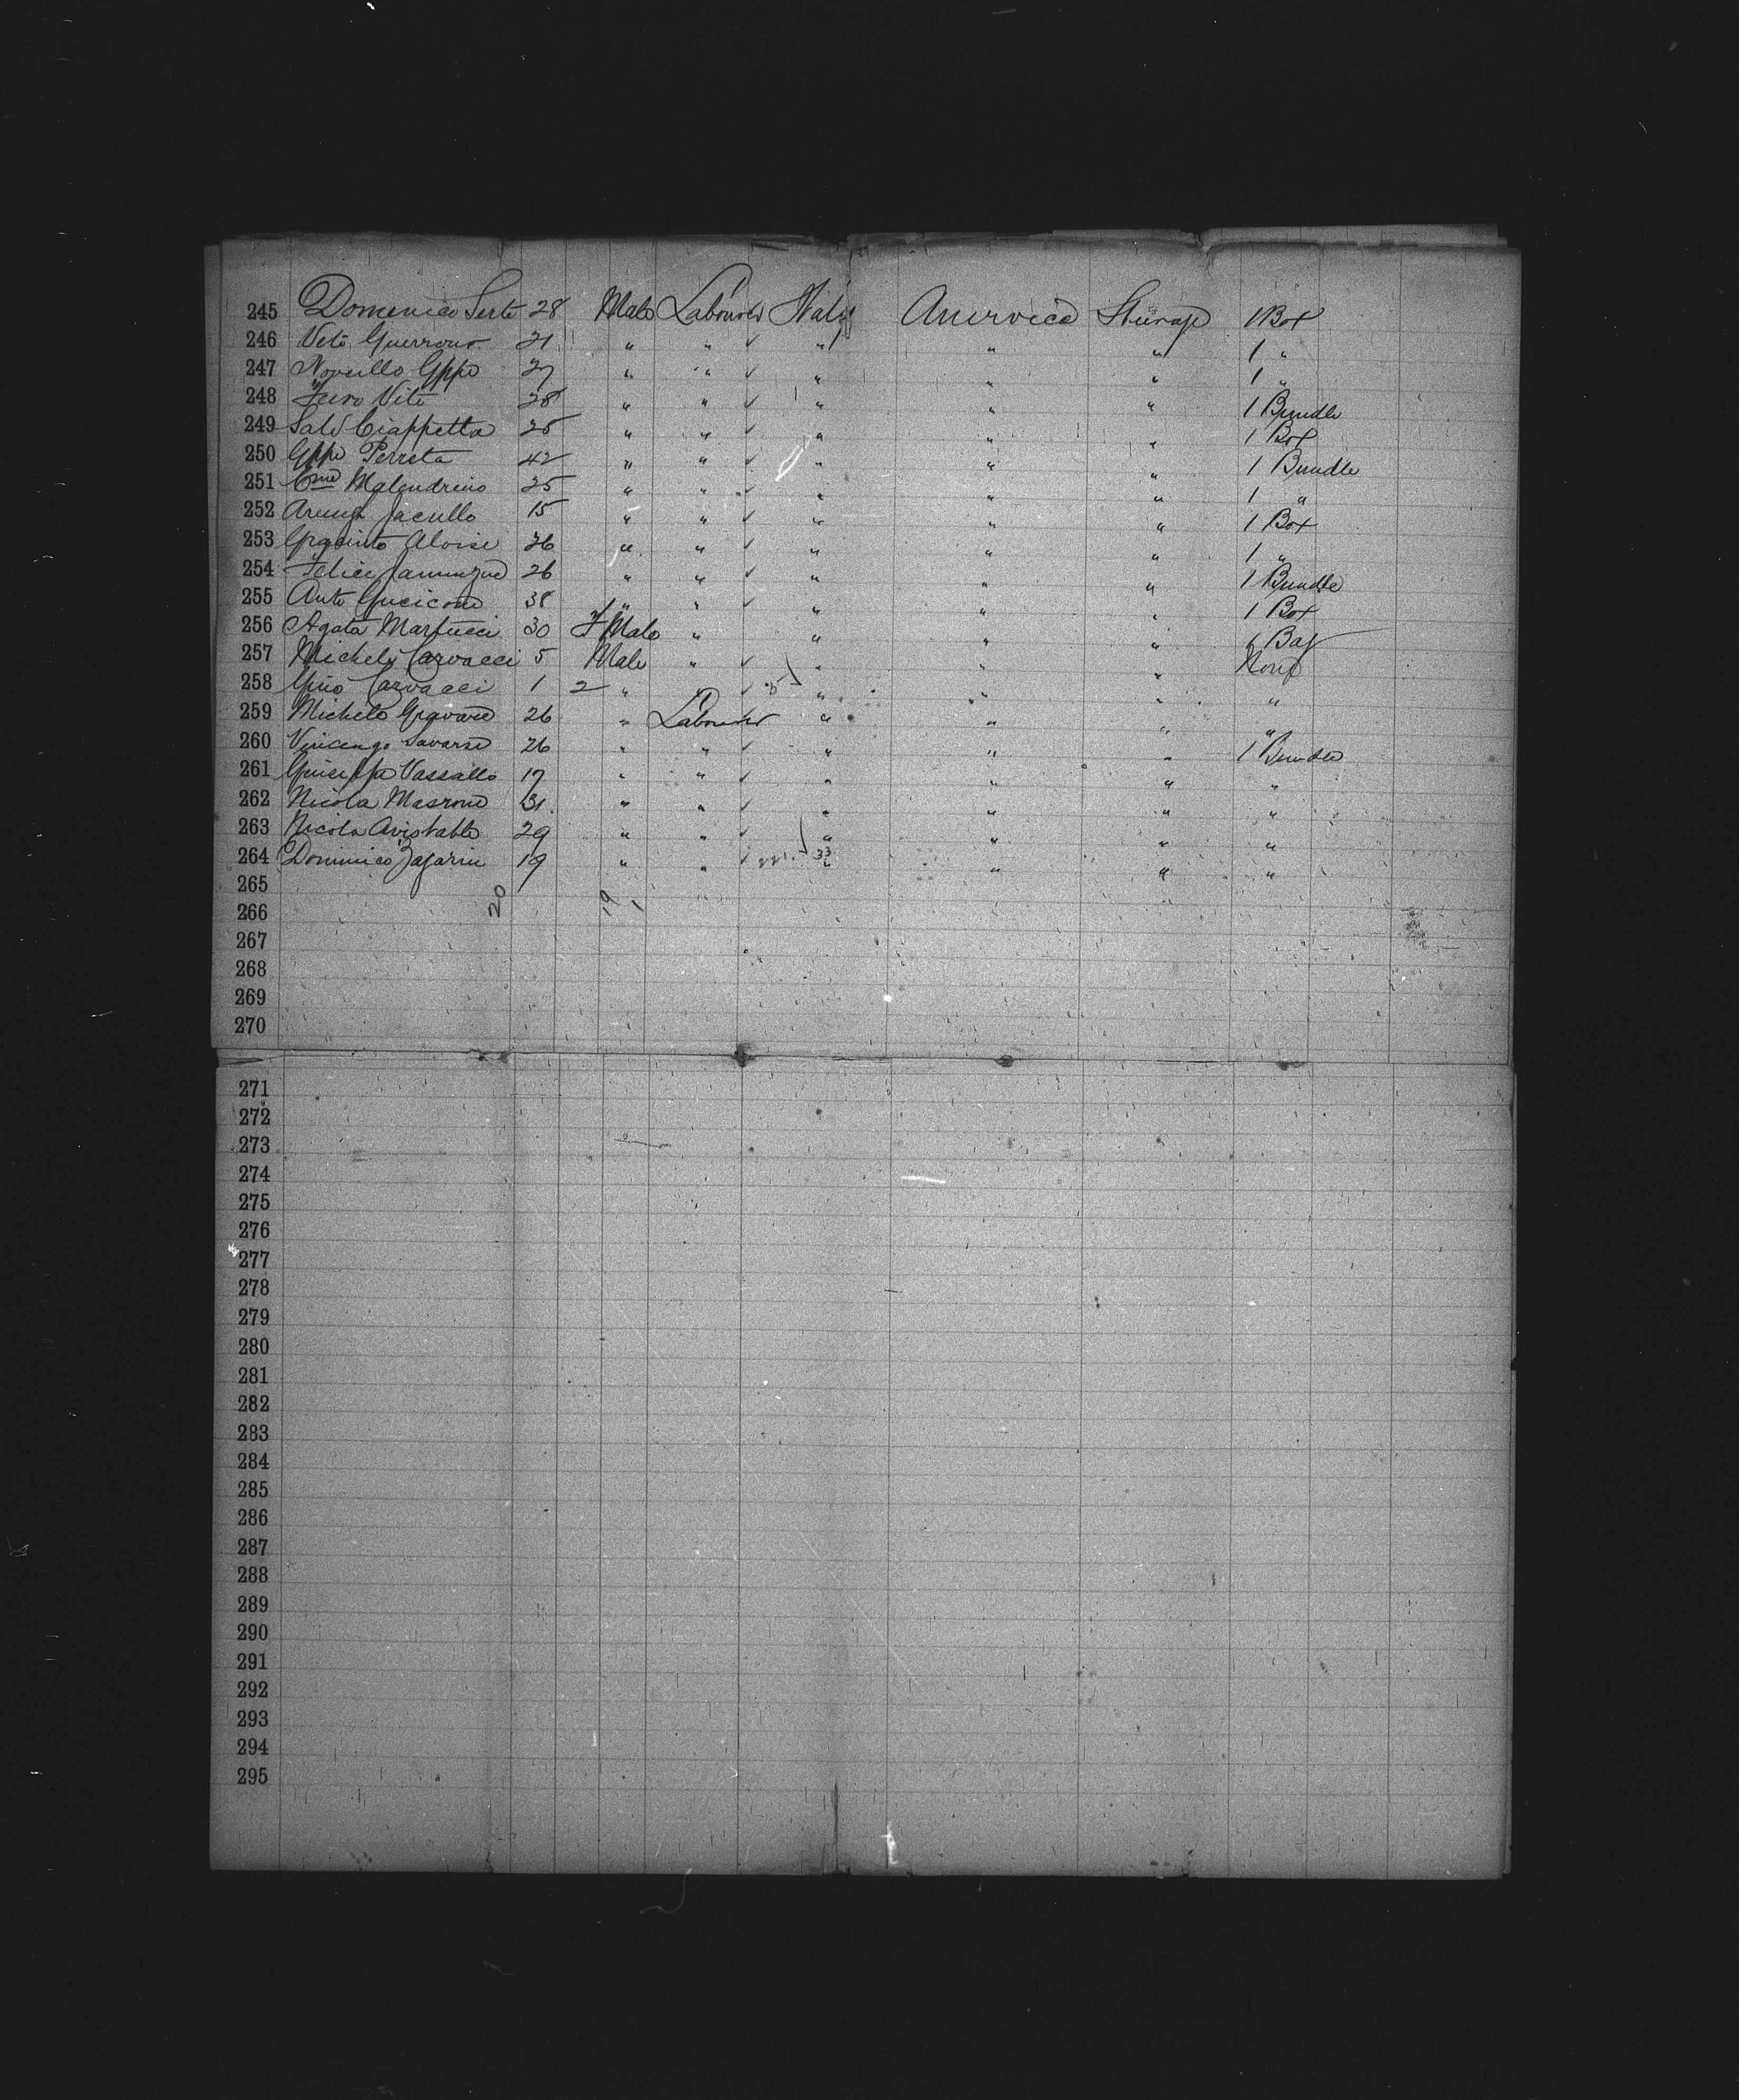 245 Domenico Serto 28 Male Labourer Italy America Steerage 1 Box
246 Vito Guerrero 21 " " " " " 1 "
247 Novello Gppe 27 " " " " " 1 "
248 Vito 28 " " " " " 1 Bundle
249 Salv Ciappetta 25 " " " " " 1 Box
250 Gppe Perreta 42 " " " " " 1 Bundle
251 Malendrino 25 " " " " " 1 "
252 Jacullo 15 " " " " " 1 Box
253 Gracinto Aloise 26 " " " " " 1 "
254 Felice 26 " " " " " 1 Bundle
255 Anto 38 " " " " " 1 Box
256 Agata Martucci 30 F Male " " " " 6 Bag
257 Michele Carvacci 5 Male " " " " None
258 Carvacci 1 2 " " " " "
259 Michele 26 " Labourer " " " "
260 Vincenzo Savarse 26 " " " " " 1 Bundle
261 Vassallo 17 " " " " " "
262 Nicola Masrone 31 " " " " " "
263 Nicola Avistable 29 " " " " " "
264 Dominico Zafarin 19 " " 33 " " " "
265
20 19 1
266
267
268
269
270
271
272
273
274
275
276
277
278
279
280
281
282
283
284
285
286
287
288
289
290
291
292
293
294
295